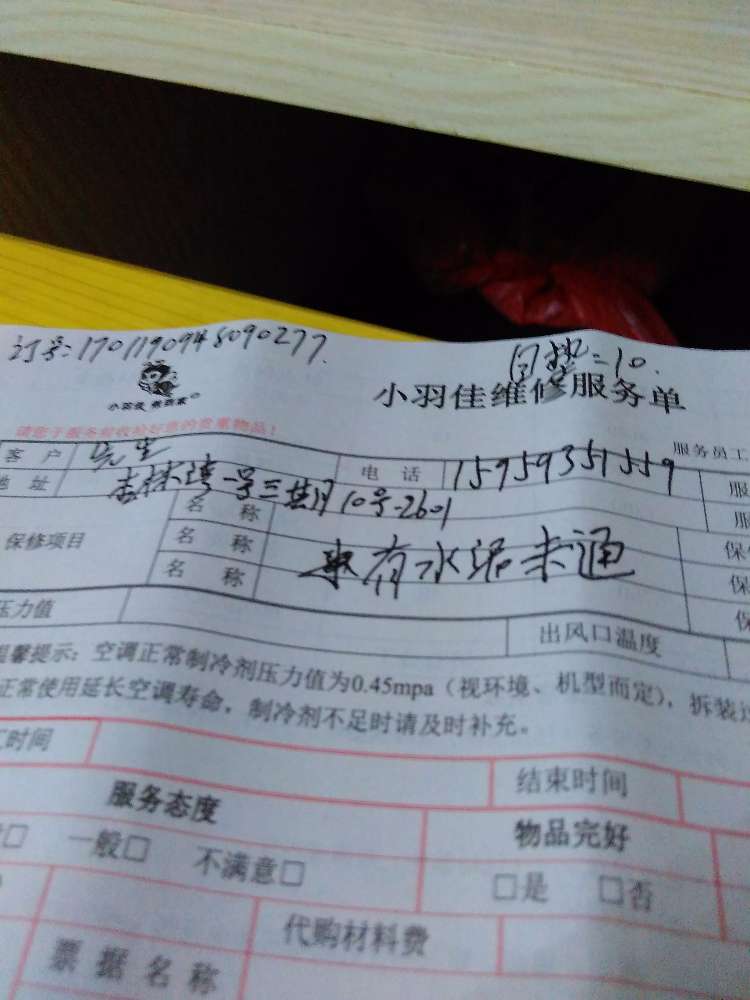 订号:1701190948090277
=10.
小羽佳维修服务单
小羽佳
请您于服务前收拾好您的贵重物品!
服务员工
客 户 先生 电 话 15959351559 服
地 址 杏林湾一号三期10号-2601 服
名 称 保
保修项目 名 称 有水泥未通 保
名 称 保
压力值 出风口温度
温馨提示:空调正常制冷剂压力值为0.45mpa(视环境、机型而定),拆装过
正常使用延长空调寿命,制冷剂不足时请及时补充。
时间 结束时间
服务态度 物品完好
□ 一般□ 不满意□ □是 □否
代购材料费
票据名称